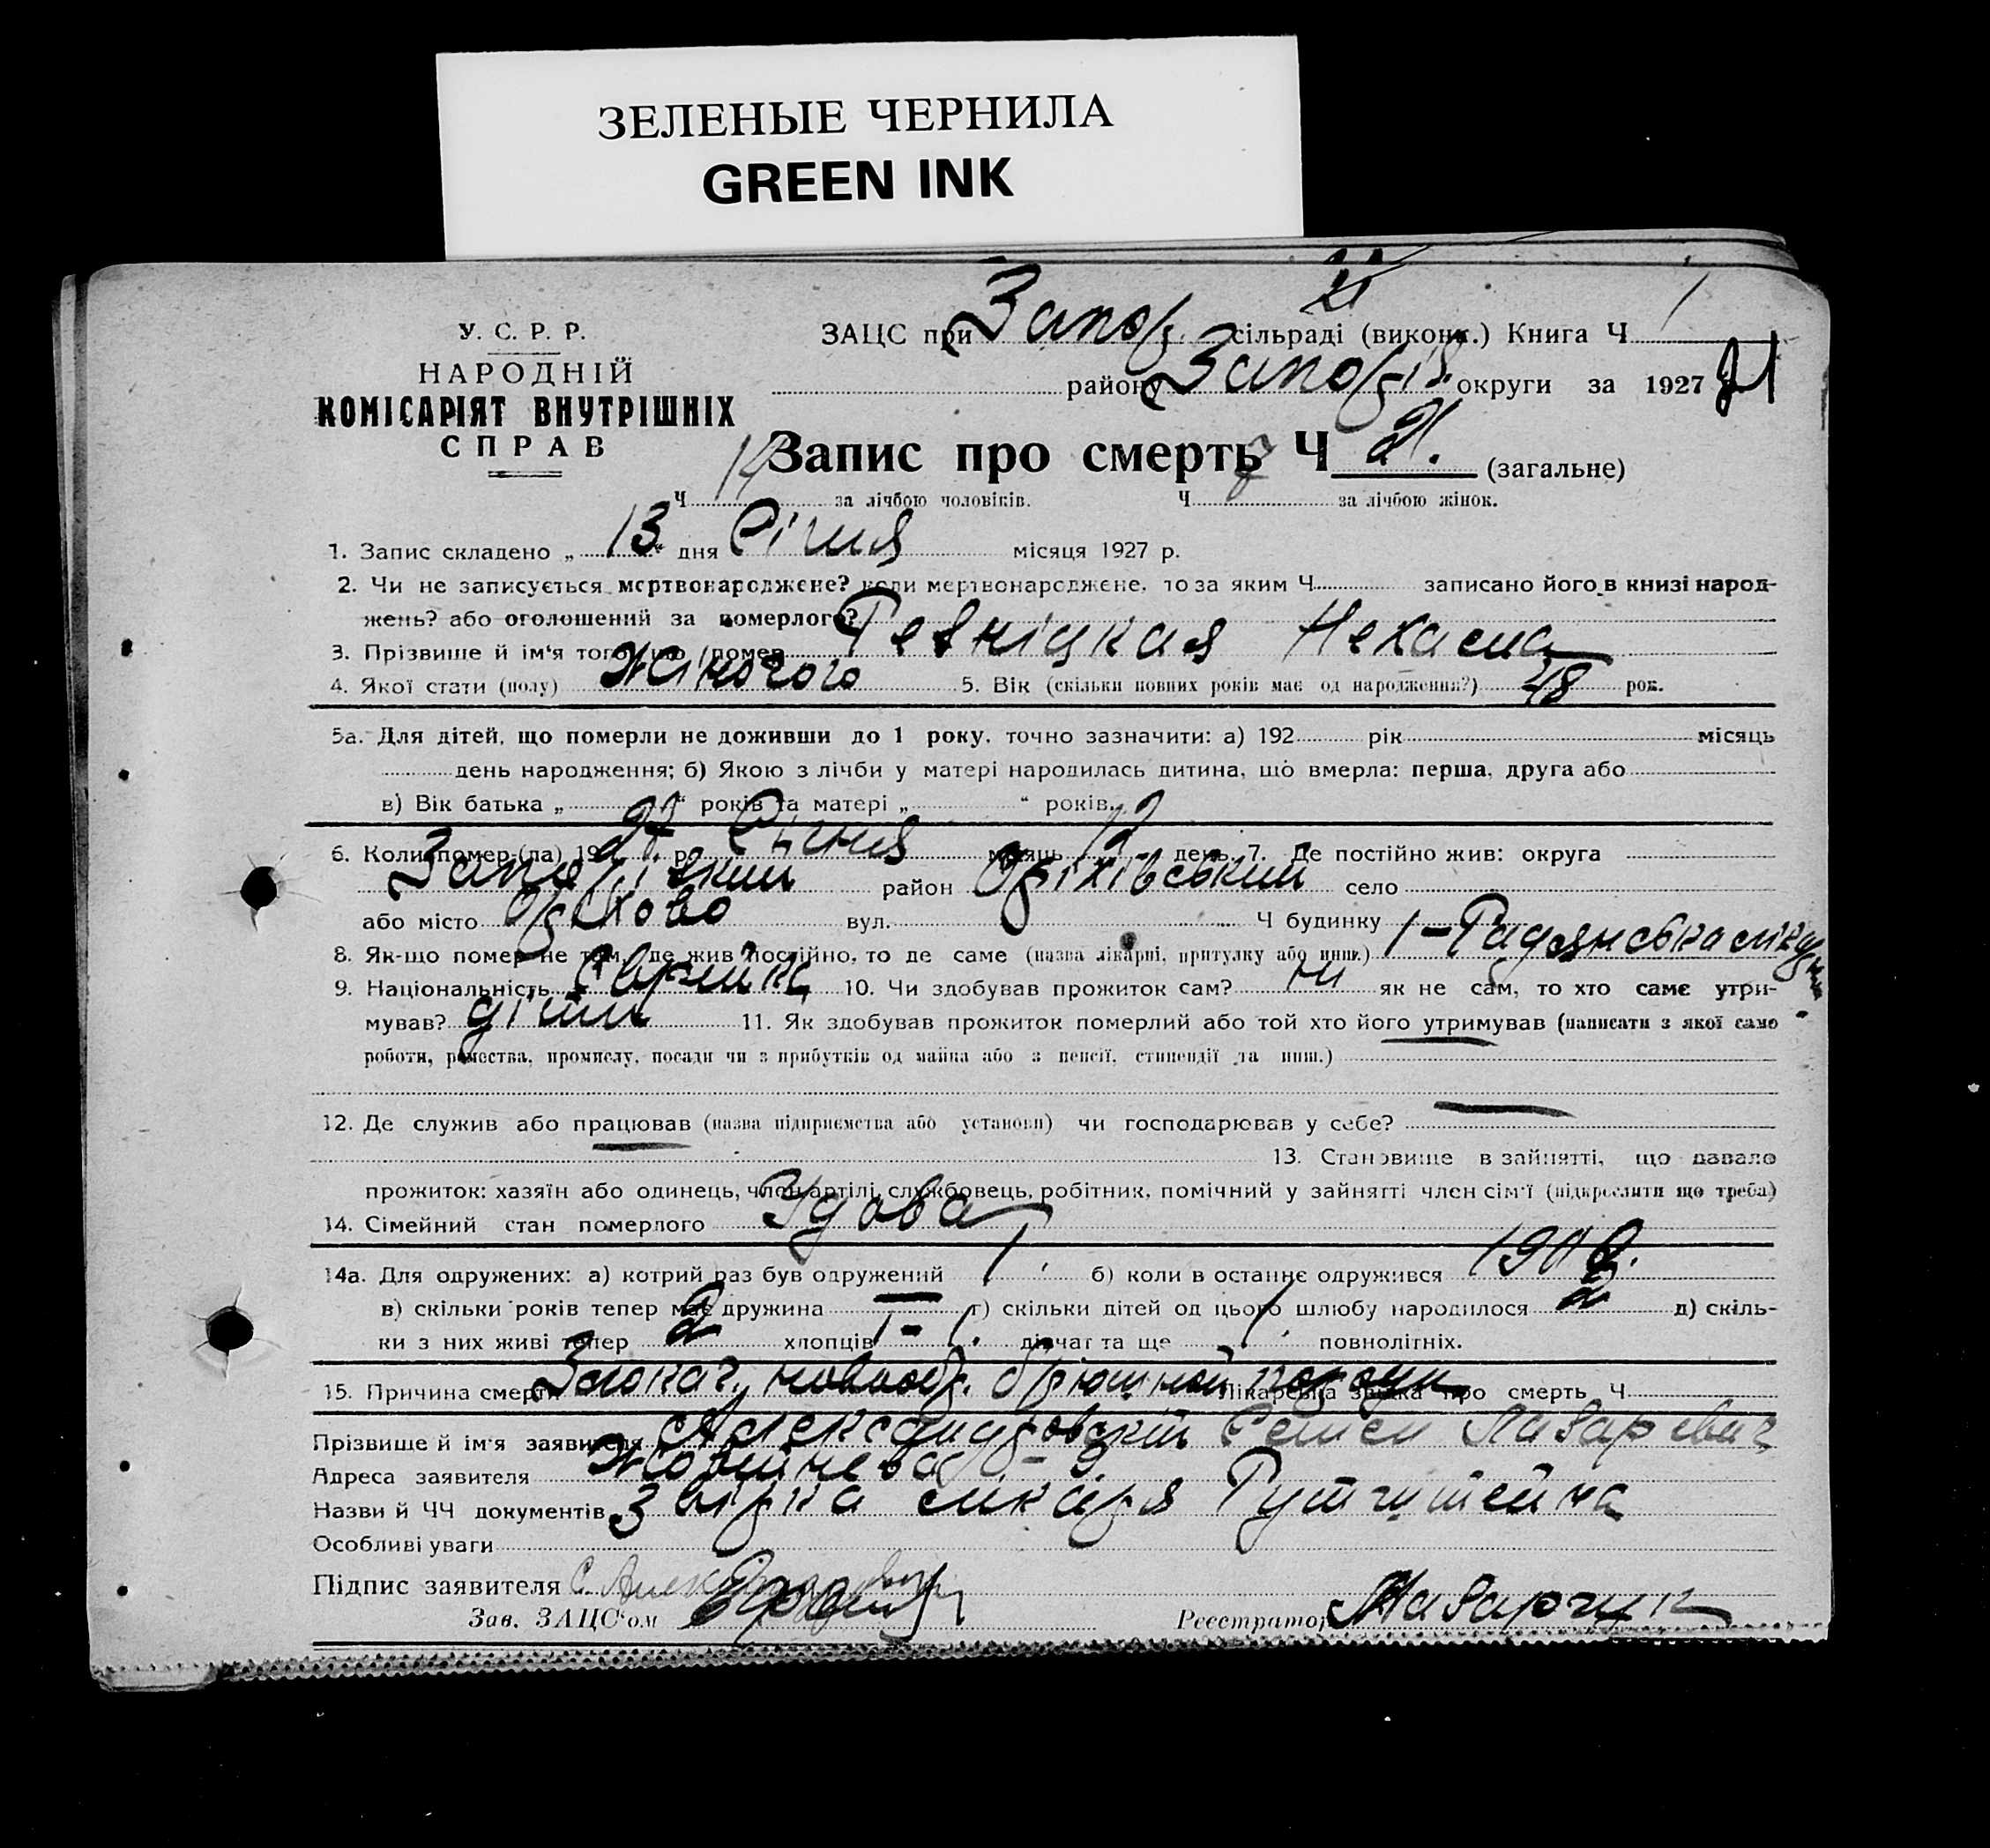 ЗЕЛЕНЫЕ ЧЕРНИЛА
GREEN INK
У. С. Р. Р.
НАРОДНІЙ
КОМІСАРІЯТ ВНУТРІШНІХ
СПРАВ
21
ЗАЦС при Запоріз. сільраді (виконк.) Книга Ч 1
району Запоріз. округи за 1927 21
Запис про смерть Ч 21. (загальне)
Ч 14 за лічбою чоловіків. Ч 7 за лічбою жінок.
1. Запис складено „ 13 “ дня Січня місяця 1927 р.
2. Чи не записується мертвонароджене? коли мертвонароджене, то за яким Ч записано його в книзі народ-
жень? або оголошений за померлого?
3. Прізвище й ім'я того, що помер Ревніцкая Нехама
4. Якої стати (полу) Жіночого 5. Вік (скільки повних років має од народження?) 48 рок.
5а. Для дітей, що померли не доживши до 1 року, точно зазначити: а) 192 рік місяць
день народження; б) Якою з лічби у матері народилась дитина, що вмерла: перша, друга або
в) Вік батька „ “ років та матері „ “ років.
6. Коли помер (ла) 1927 р. Січня місяць 12 день. 7. Де постійно жив: округа
Запорізький район Оріхівський село
або місто Оріхово вул. Ч будинку
8. Як-що помер не там, де жив постійно, то де саме (назва лікарні, притулку або инш.) 1-Радянська лікарня
9. Національність Єврейка 10. Чи здобував прожиток сам? ні як не сам, то хто саме утри-
мував? діти 11. Як здобував прожиток померлий або той хто його утримував (написати з якої само
роботи, ремества, промислу, посади чи з прибутків од майна або з пенсії, стипендії та инш.)
12. Де служив або працював (назва підприємства або установи) чи господарював у себе?
13. Становище в зайнятті, що давало
прожиток: хазяїн або одинець, член артілі, службовець, робітник, помічний у зайнятті член сім'ї (підкреслити що треба)
14. Сімейний стан померлого Удова
14а. Для одружених: а) котрий раз був одружений 1. б) коли в останнє одружився
в) скільки років тепер має дружина — г) скільки дітей од цього шлюбу народилося 2 д) скіль-
ки з них живі тепер 2 хлопців 1 - 1. дівчат та ще 1. повнолітніх.
15. Причина смерти Злокач. новообр. брюшной Лікарська звістка про смерть Ч
Прізвище й ім'я заявителя Александровскій Семен Лазаревич
Адреса заявителя Жовтнева 9
Назви й ЧЧ документів Звірка лікаря Гутштейна
Особливі уваги
Підпис заявителя С. Александров
Зав. ЗАЦС'ом
Реєстратор Назарчук